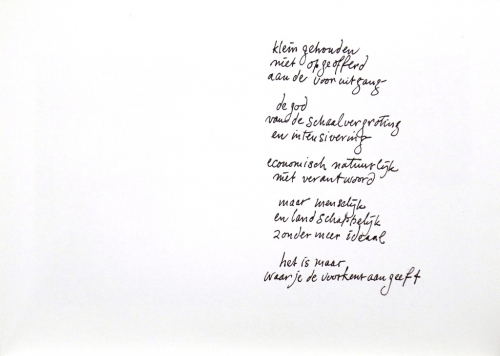 klein gehouden
niet opgeofferd
aan de vooruitgang
de god
van de schaalvergroting
en intensivering
economisch natuurlijk
niet verantwoord
maar menselijk
en landschappelijk
zonder meer ideaal
het is maar
waar je de voorkeur aan geeft